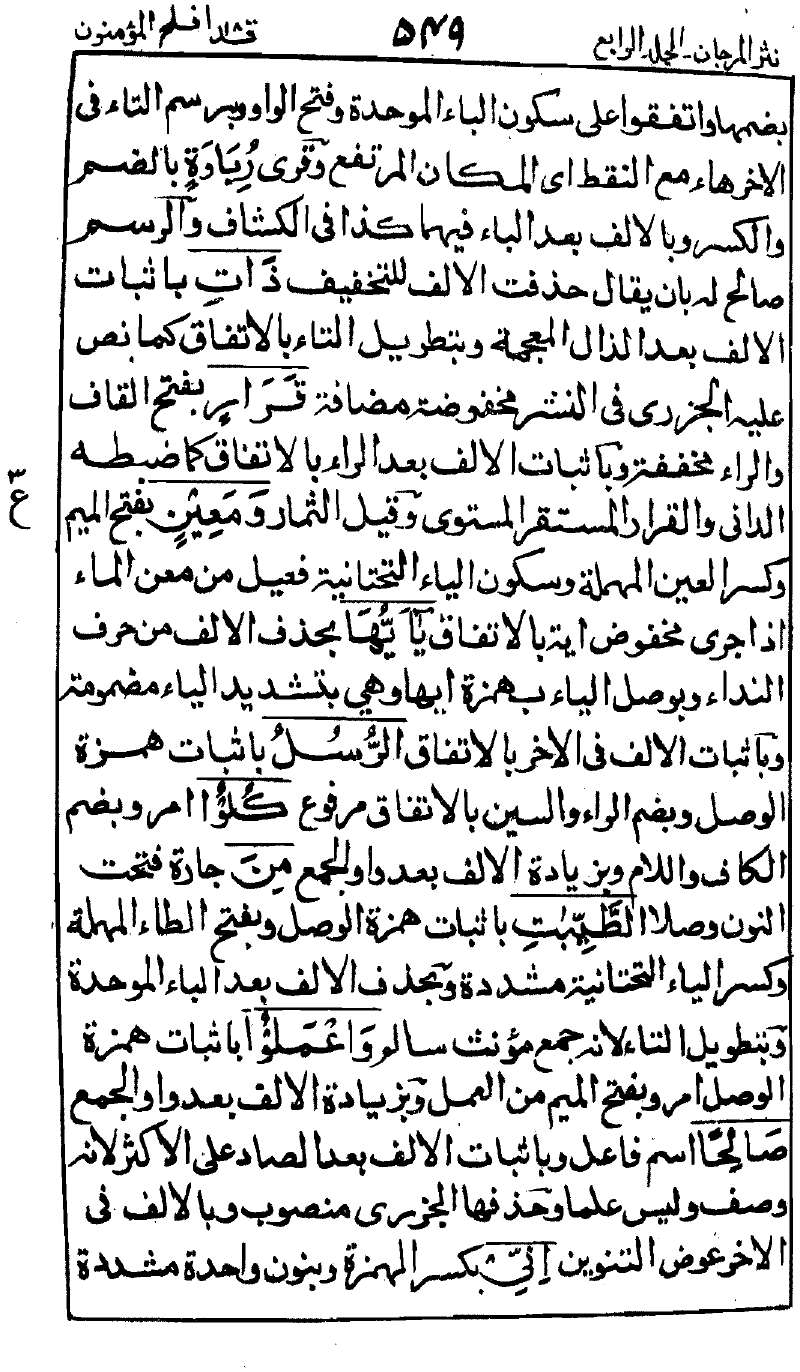 نثر المرجان۔ المجلد الرابع
۵۴۹
قد افلح المؤمنون
بضمها واتفقوا على سكون الباء الموحدة وفتح الواو وبرسم التاء فى
الاخرهاء مع النقط اى المكان المرتفع وقرى رُِبَاوَةٍ بالضم
والكسر وبالالف بعد الباء فيهما كذا فى الكشاف والرسم
صالح له بان يقال حذفت الالف للتخفيف ذَاتِ باثبات
الالف بعد الذال المعجمة وبتطويل التاء بالاتفاق كما نص
عليه الجزرى فى النشر مخفوضة مضافة قَرَارٍ بفتح القاف
والراء مخففة وباثبات الالف بعد الراء بالاتفاق كما ضبطه
الدانى والقرار المستقر المستوى وقيل الثمار وَمَعِيْنٍ بفتح الميم
وكسر العين المهملة وسكون الياء التحتانية فعيل من معن الماء
اذا جرى مخفوض اية بالاتفاق يٰٓاَيُّهَا بحذف الالف من حرف
النداء وبوصل الياء ب‍همزة ايها وهى بتشديد الياء مضمومة
وباثبات الالف فى الاخر بالاتفاق الرُّسُلُ باثبات همزة
الوصل وبضم الراء والسين بالاتفاق مرفوع كُلُوْا امر وبضم
الكاف واللام وبزيادة الالف بعد واو الجمع مِنَ جارة فتحت
النون وصلا الطَّيِّبٰتِ باثبات همزة الوصل وبفتح الطاء المهملة
وكسر الياء التحتانية مشددة وبحذف الالف بعد الباء الموحدة
وبتطويل التاء لانه جمع مؤنث سالم وَاعْمَلُوْا باثبات همزة
الوصل امر وبفتح الميم من العمل وبزيادة الالف بعد واو الجمع
صَالِحًا اسم فاعل وباثبات الالف بعد الصاد على الاكثر لانه
وصف وليس علما وحذفها الجزرى منصوب وبالالف فى
الاخر عوض التنوين اِنِّىْ بكسر الهمزة وبنون واحدة مشددة
ع